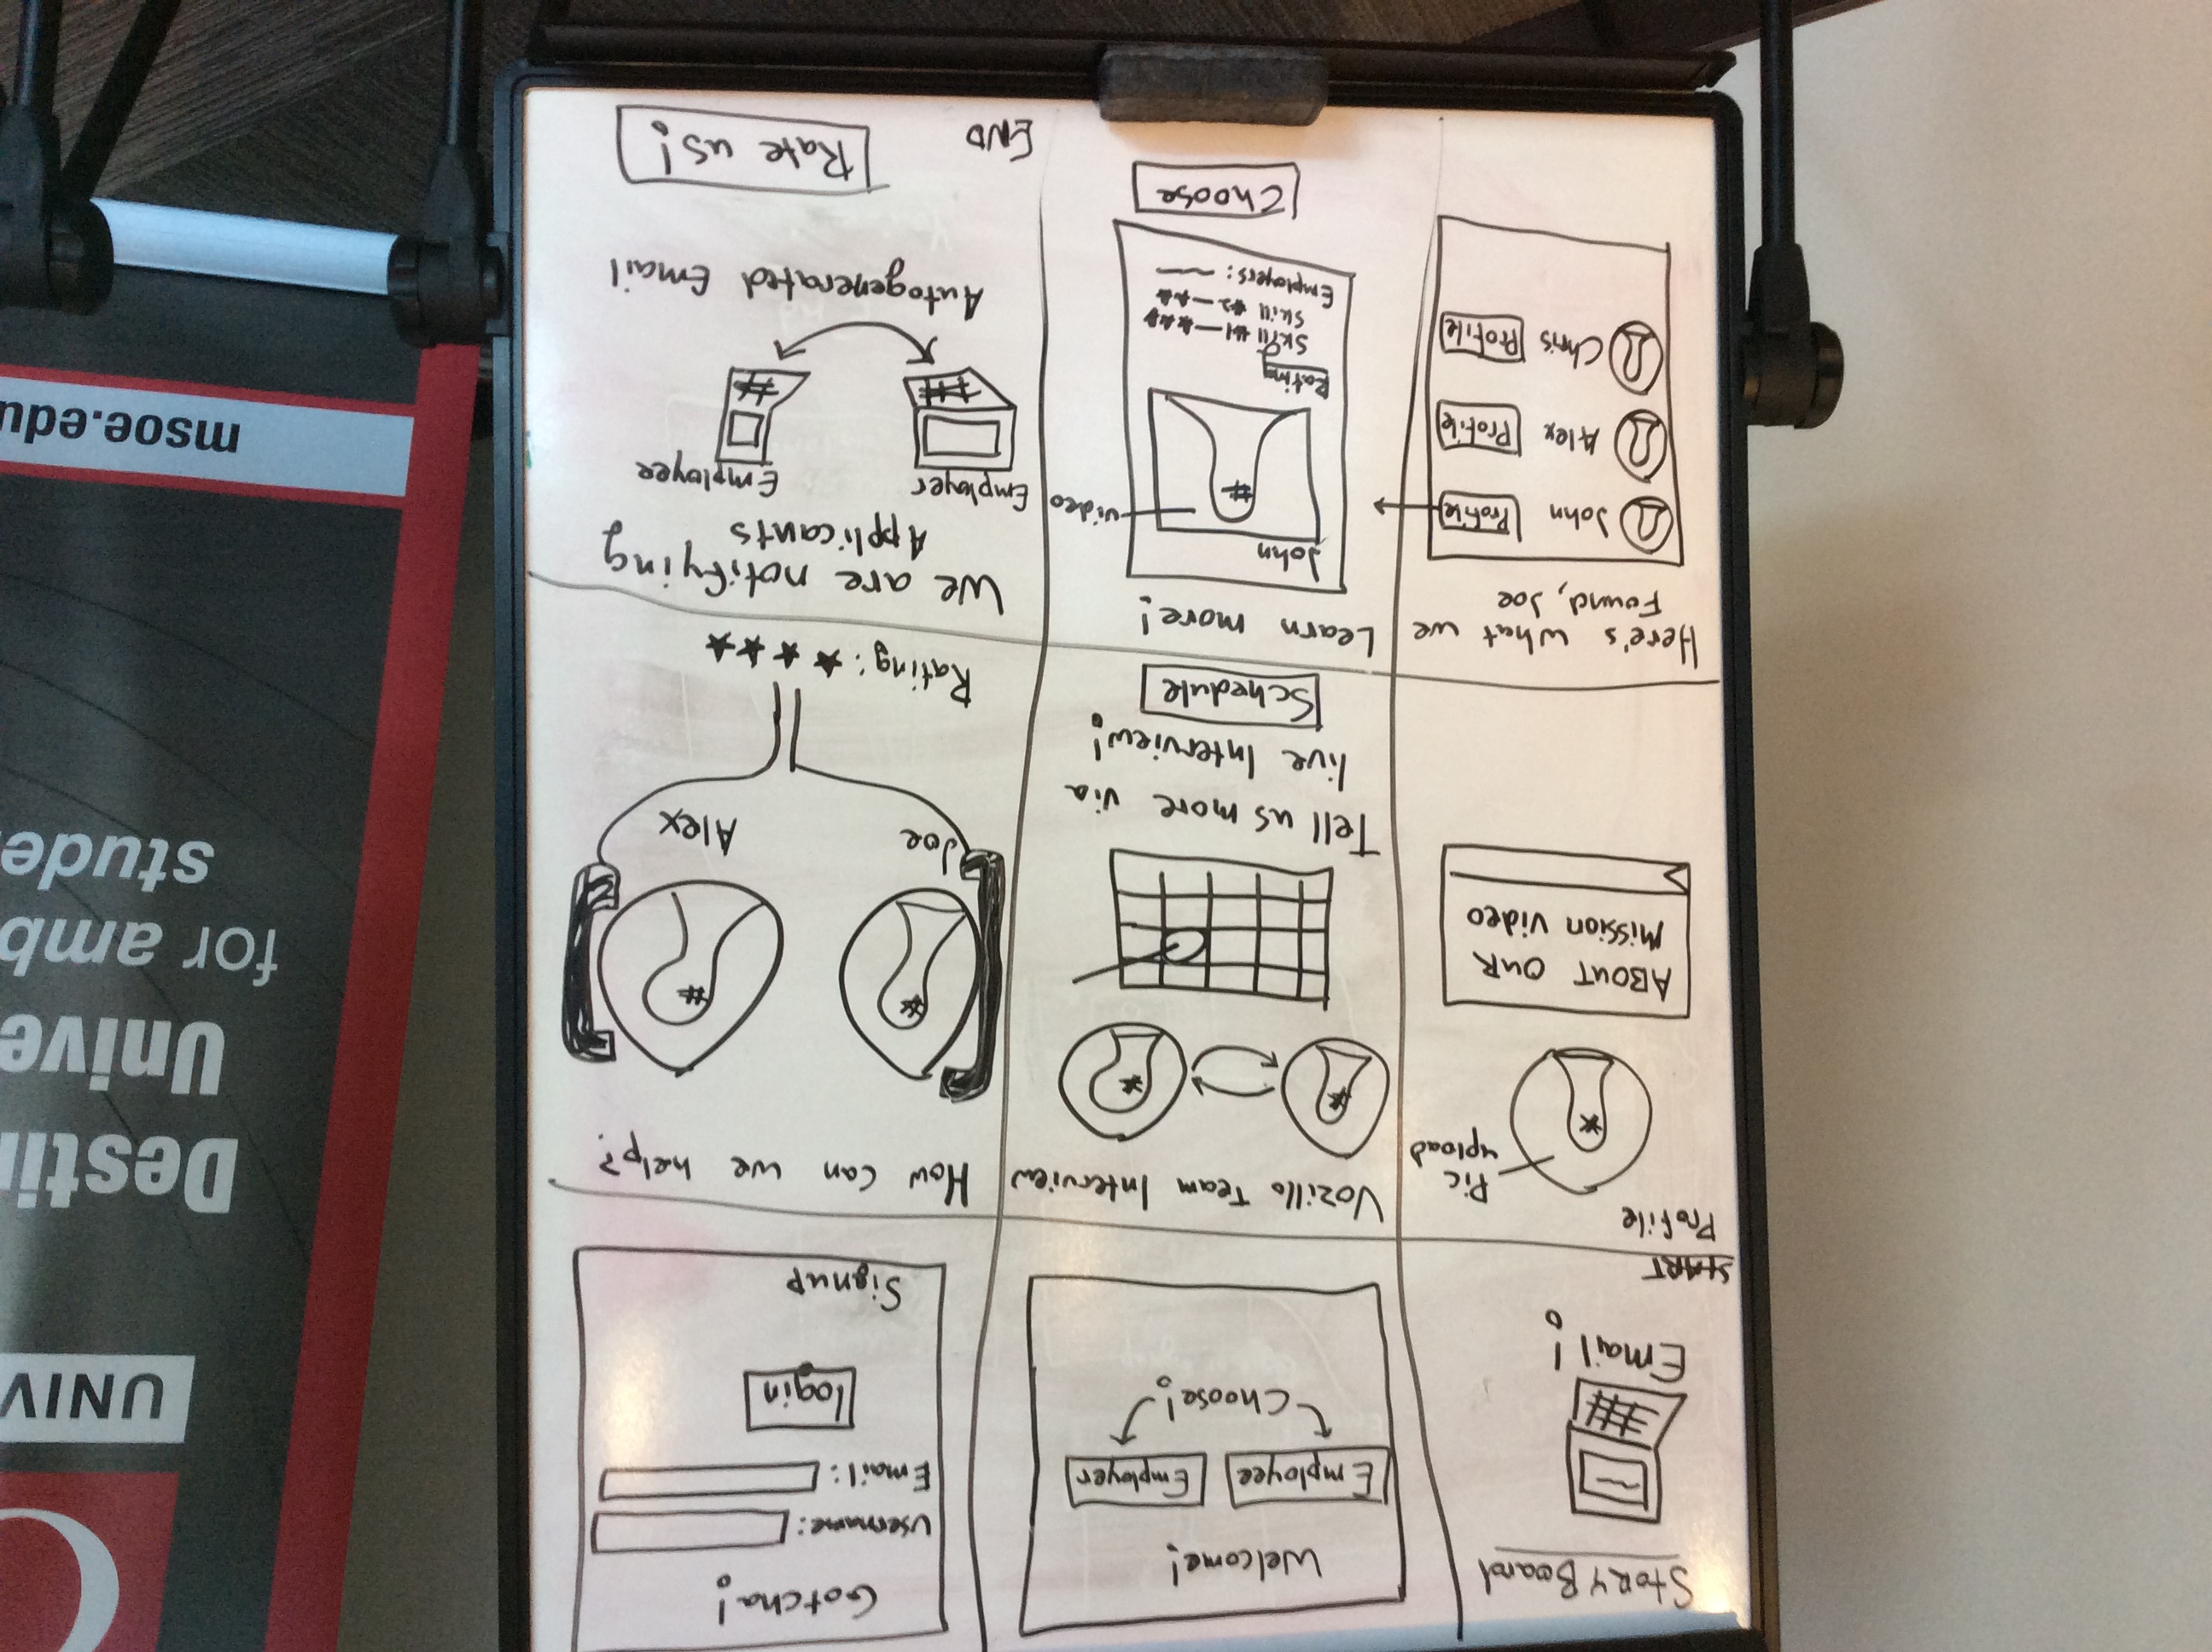 StoRY Board
Email!
START
Welcome!
Employee
Employer
Choose!
Gotcha!
Username:
Email:
login
Signup
Profile
Pic
upload
ABOUT OUR
Mission Video
Vozillo Team Interview
Tell us more via
live Interview!
Schedule
How can we help?
Joe
Alex
Rating: ★ ★ ★ ★
Here's what we
Found, Joe
John Profile
Alex Profile
Chris Profile
Learn more!
John
video
Rating
Skill #1 — ★★★
Skill #2 — ★★
Employers:
Choose
We are notifying
Applicants
Employer
Employee
Autogenerated Email
END
Rate us!
UNIV
Desti
Unive
for amb
stude
msoe.edu